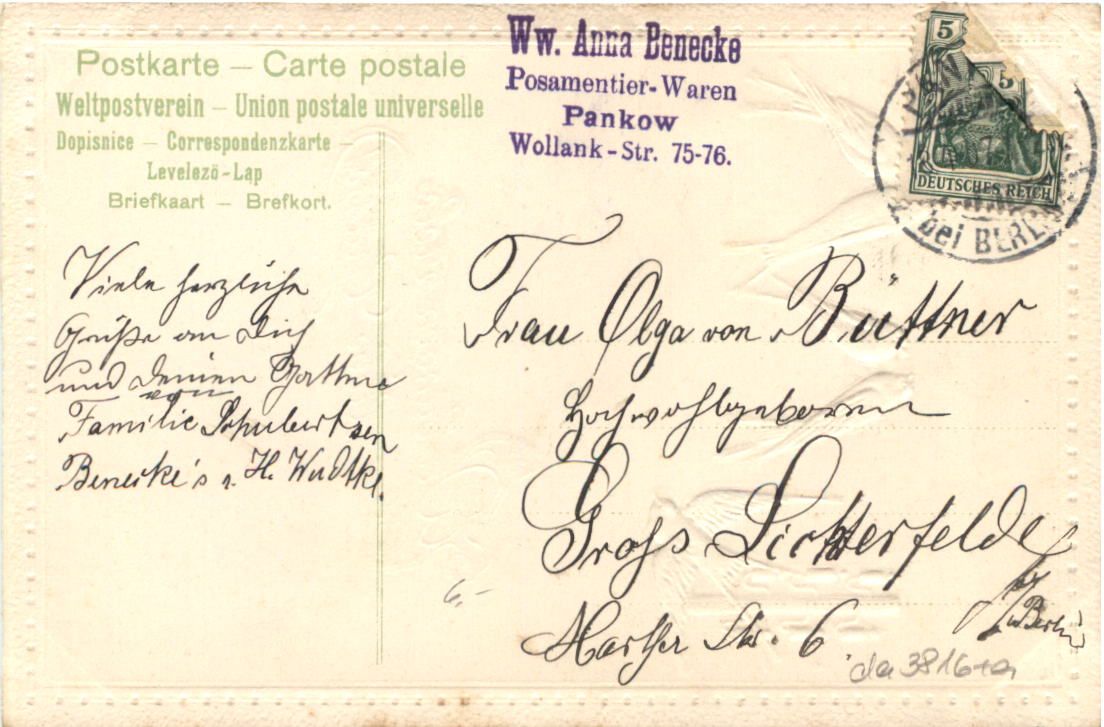 Postkarte – Carte postale
Weltpostverein – Union postale universelle
Dopisnice – Correspondenzkarte –
Levelező-Lap
Briefkaart – Brefkort.
Ww. Anna Benecke
Posamentier-Waren
Pankow
Wollank-Str. 75-76.
5
5
DEUTSCHES REICH
bei BERL
Viele herzliche
Grüße an Dich
und Deinen Gatten
von
Familie Schubert
Benecke's u. H. Wudtke.
Frau Olga von Büttner
Hochwohlgeboren
Gross Lichterfelde
b/Berlin
Marther Str. 6
6.-
3816